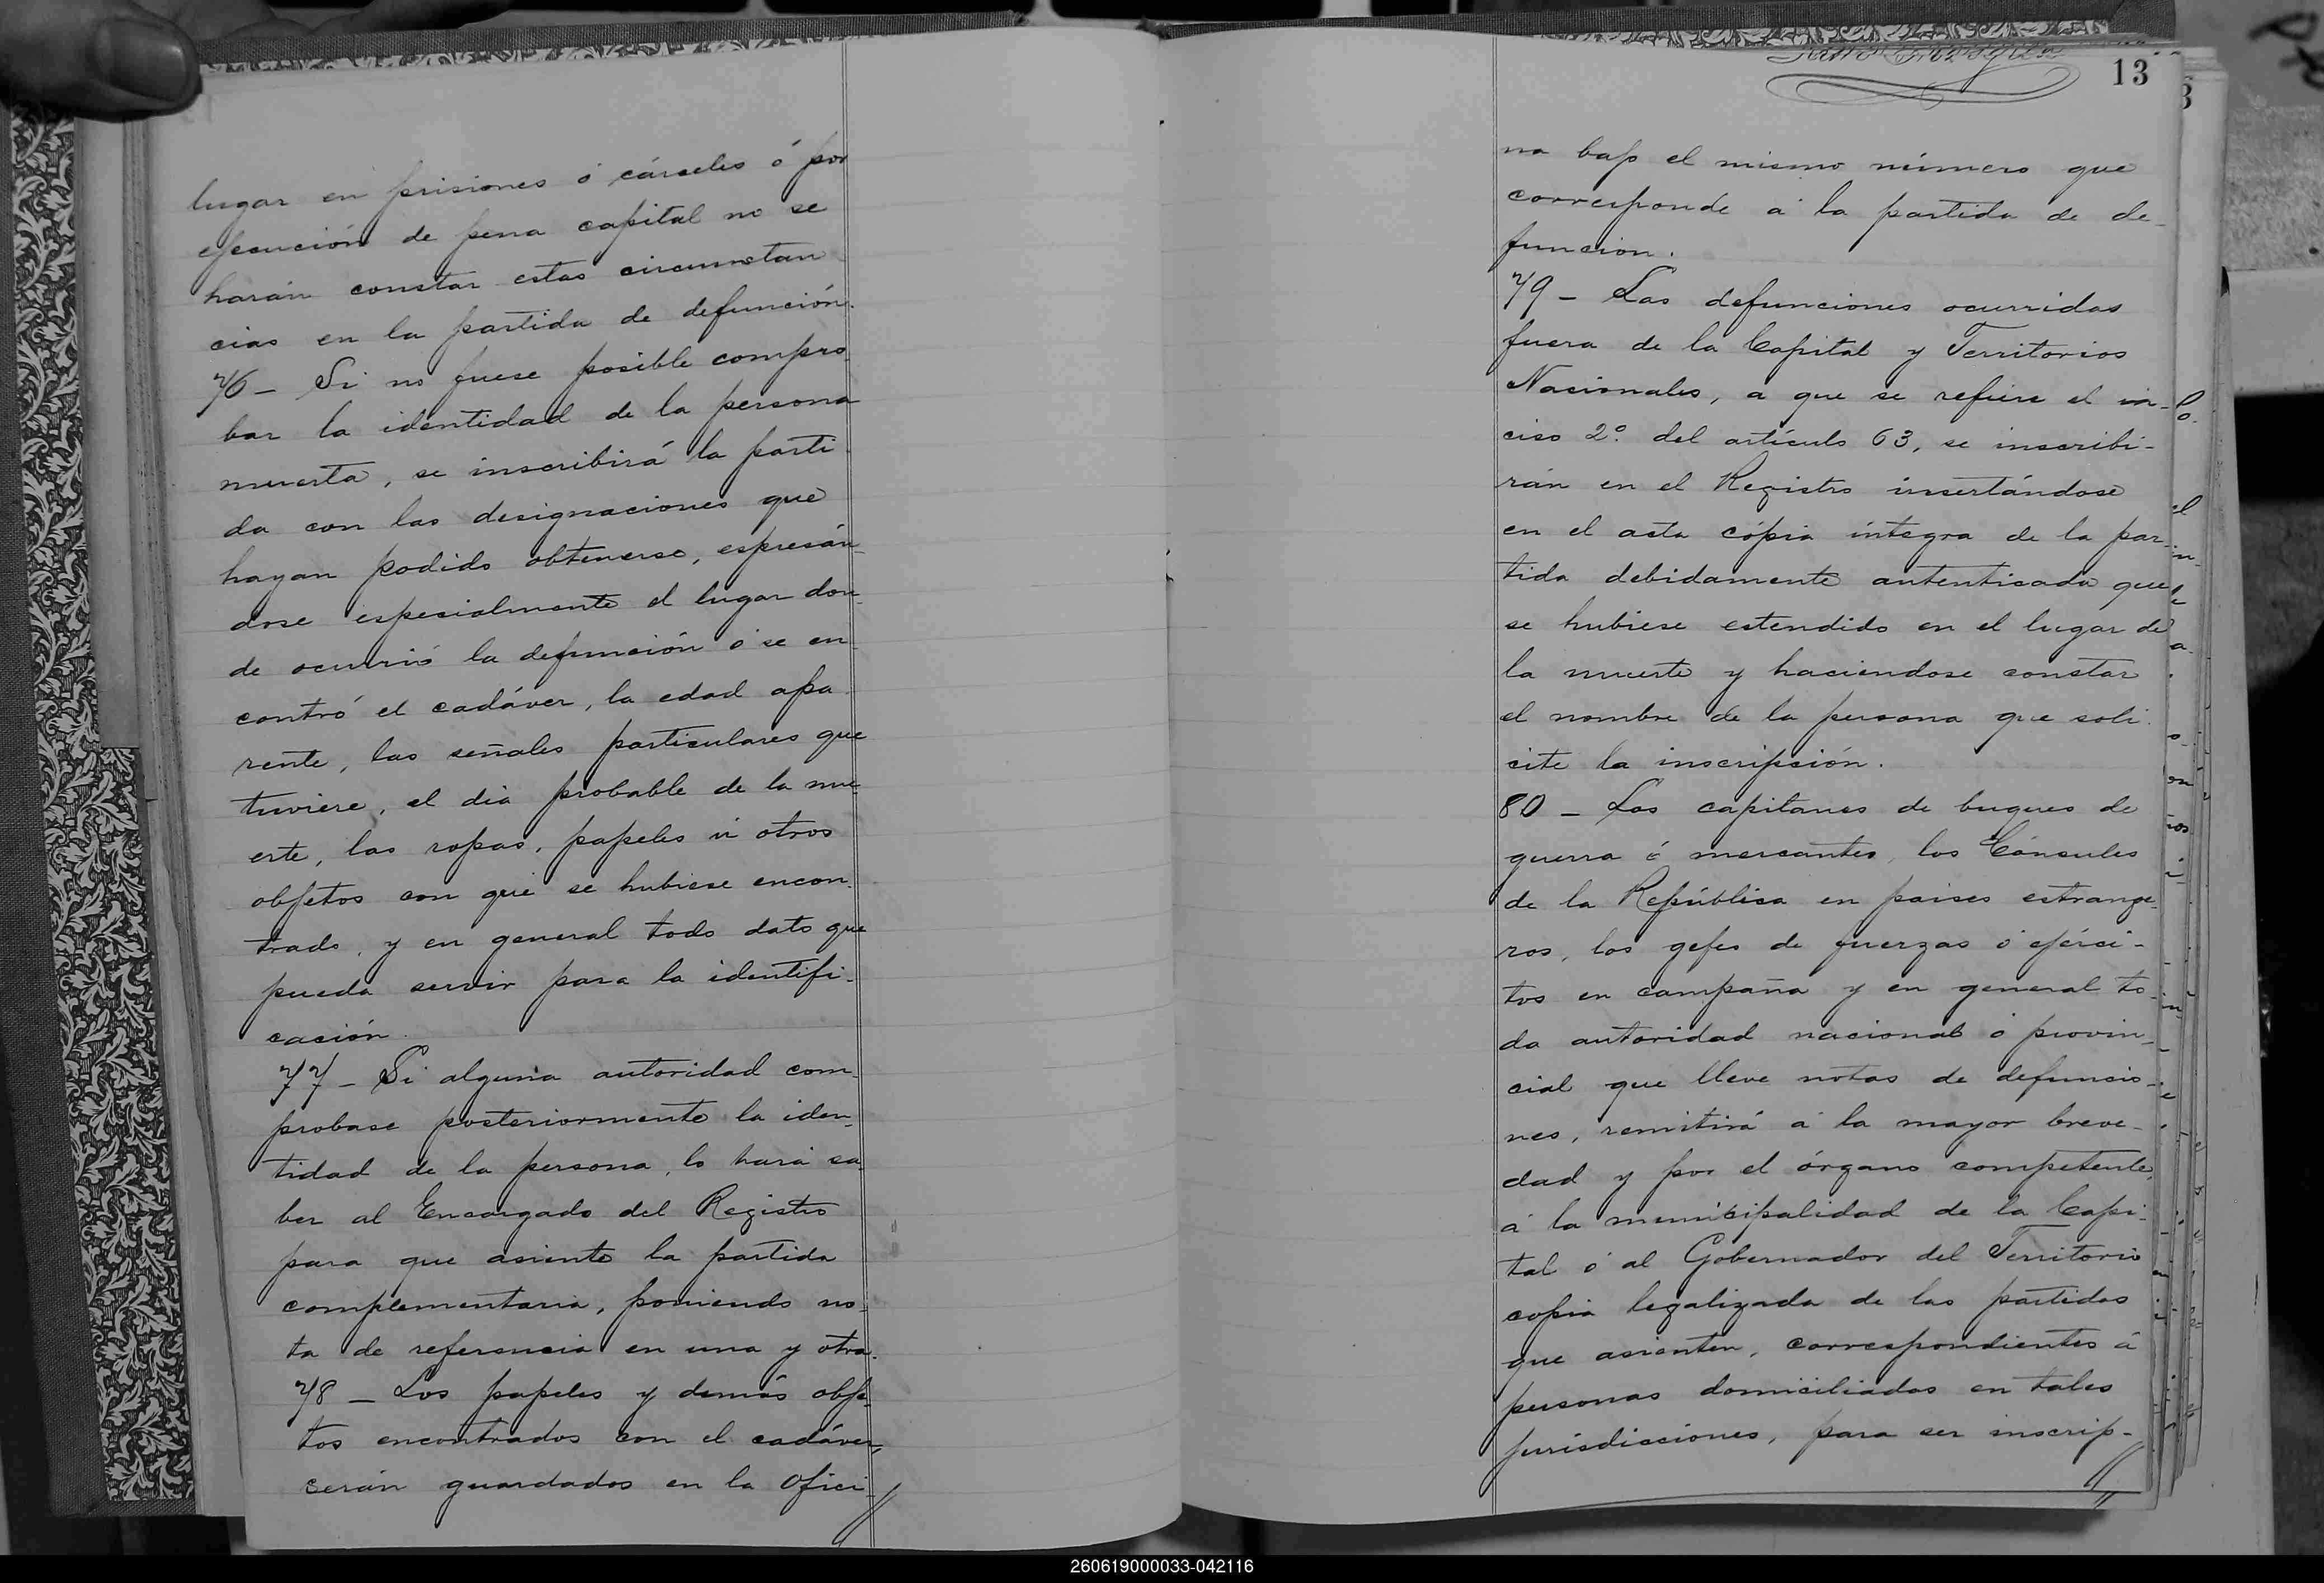 lugar en prisiones ó cárceles ó por
ejecución de pena capital no se
harán constar estas circunstan
cias en la partida de defunción.
76 – Si no fuese posible compro
bar la identidad de la persona
muerta, se inscribirá la parti
da con las designaciones que
hayan podido obtenerse, espresán
dose especialmente el lugar don-
de ocurrió la defunción ó se en
contró el cadáver, la edad apa
rente, las señales particulares que
tuviere, el dia probable de la mu-
erte, las ropas, papeles ú otros
objetos con que se hubiese encon
trado, y en general todo dato que
pueda servir para la identifi-
cación.
77 – Si alguna autoridad com-
probase posteriormente la iden-
tidad de la persona, lo hará sa
ber al Encargado del Registro
para que asiente la partida
complementaria, poniendo no-
ta de referencia en una y otra.
78 – Los papeles y demás obje-
tos encontrados con el cadáver,
serán guardados en la Ofici-
13
na bajo el mismo número que
corresponde á la partida de de-
función.
79 – Las defunciones ocurridas
fuera de la Capital y Territorios
Nacionales, a que se refiere el in-
ciso 2º del artículo 63, se inscribi-
rán en el Registro insertándose
en el acta cópia íntegra de la par-
tida debidamente autenticada que
se hubiese estendido en el lugar de
la muerte y haciendose constar
el nombre de la persona que soli-
cite la inscripción.
80 – Los capitanes de buques de
guerra ó mercantes, los Cónsules
de la República en paises estrange-
ros, los gefes de fuerzas ó ejérci-
tos en campaña y en general to-
da autoridad nacional ó provin-
cial que lleve notas de defuncio-
nes, remitirá á la mayor breve-
dad y por el órgano competente,
á la municipalidad de la Capi-
tal ó al Gobernador del Territorio
copia legalizada de las partidas
que asienten, correspondientes á
personas domiciliadas en tales
jurisdicciones, para ser inscrip-
260619000033-042116